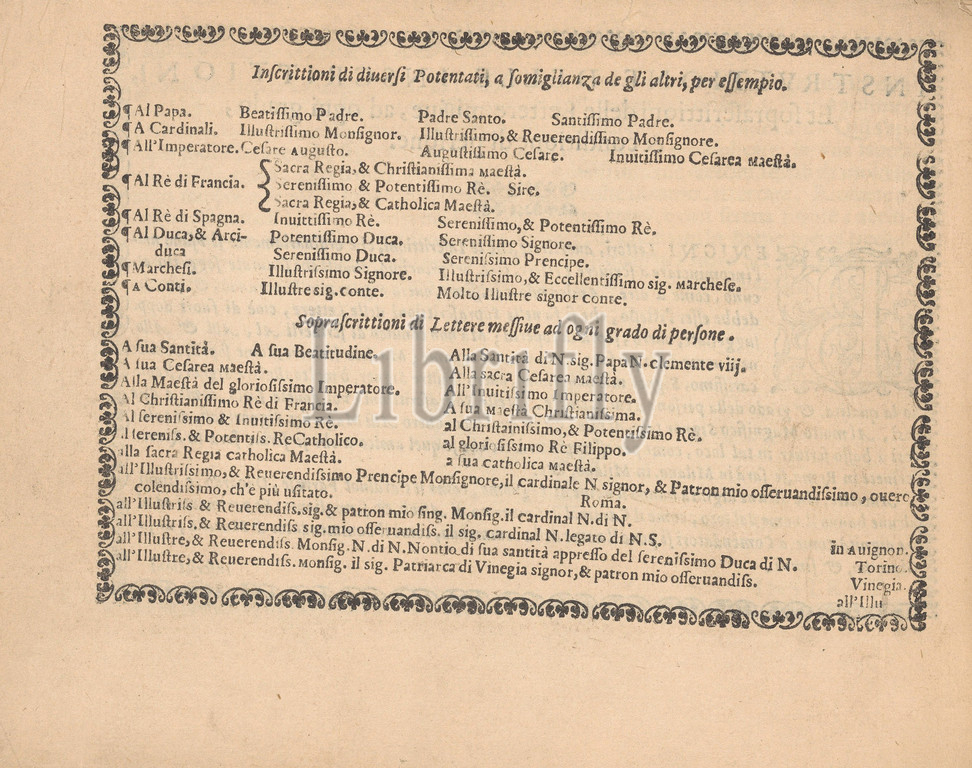 Inscrittioni di diuersi Potentati, a somiglianza de gli altri, per essempio.
¶ Al Papa. Beatissimo Padre. Padre Santo. Santissimo Padre.
¶ A Cardinali. Illustrissimo Monsignor. Illustrissimo, & Reuerendissimo Monsignore.
¶ All'Imperatore. Cesare Augusto. Augustissimo Cesare. Inuitissimo Cesarea Maestà.
Sacra Regia, & Christianissima Maestà.
¶ Al Rè di Francia. Serenissimo & Potentissimo Rè. Sire.
Sacra Regia, & Catholica Maestà.
¶ Al Rè di Spagna. Inuittissimo Rè. Serenissimo, & Potentissimo Rè.
¶ Al Duca, & Arci- Potentissimo Duca. Serenissimo Signore.
duca Serenissimo Duca. Serenissimo Prencipe.
¶ Marchesi. Illustrissimo Signore. Illustrissimo, & Eccellentissimo sig. Marchese.
¶ A Conti. Illustre sig. conte. Molto Illustre signor conte.
Soprascrittioni di Lettere messiue ad ogni grado di persone.
A sua Santità. A sua Beatitudine. Alla Santità di N. sig. Papa N. clemente viij.
A sua Cesarea Maestà. Alla sacra Cesarea Maestà.
Alla Maestà del gloriosissimo Imperatore. All'Inuitissimo Imperatore.
Al Christianissimo Rè di Francia. A sua Maestà Christianissima.
Al serenissimo & Inuitissimo Rè. al Christainissimo, & Potentissimo Rè.
al sereniss. & Potentiss. Re Catholico. al gloriosissimo Rè Filippo.
alla sacra Regia catholica Maestà. a sua catholica Maestà.
all'Illustrissimo, & Reuerendissimo Prencipe Monsignore, il cardinale N. signor, & Patron mio osseruandissimo, ouero
colendissimo, ch'è più usitato. Roma.
all'Illustriss. & Reuerendiss. sig. & patron mio sing. Monsig. il cardinal N. di N.
all'Illustriss. & Reuerendiss sig. mio osseruandiss. il sig. cardinal N. legato di N.S. in Auignon.
all'Illustre, & Reuerendiss. Monsig. N. di N. Nontio di sua santità appresso del serenissimo Duca di N. Torino.
all'Illustre, & Reuerendiss. Monsig. il sig. Patriarca di Vinegia signor, & patron mio osseruandiss. Vinegia.
all'Illu
Librifly